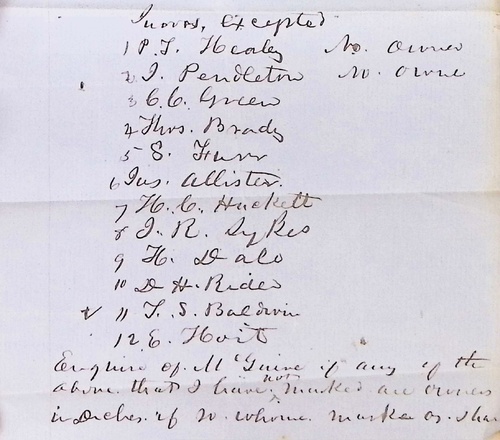 Jurors, Excepted
1 P. T. Healey No. owner
2 J. Pendleton No. owne
3 C. C. Green
4 Thos. Brady
5 S. Furr
6 Jas. Allister.
7 H. C. Huckett
8 J. R. Sykes
9 H. Dalo
10 D H. Rider
√ 11 T. S. Baldwin
12 E. Hoit
Enquire of McGuire if any of the
above that I have not marked are owners
in Ditches if so whome marke as shar